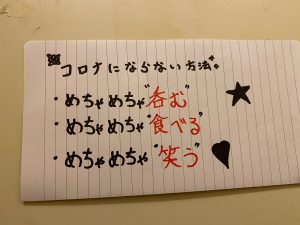 コロナにならない方法
・めちゃめちゃ"呑む"
・めちゃめちゃ"食べる"
・めちゃめちゃ"笑う"